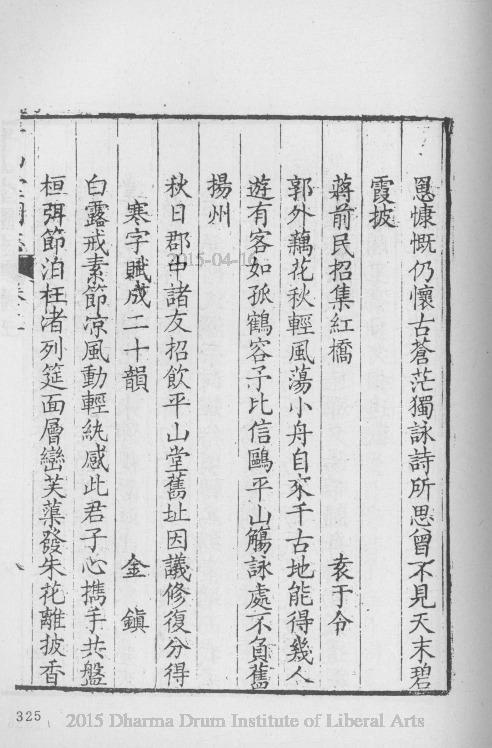 恩慷慨仍懷古蒼茫獨詠詩所思曾不見天末碧
霞披
蔣前民招集紅橋 袁于令
郭外藕花秋輕風蕩小舟自來千古地能得幾人
遊有客如孤鶴容予比信鷗平山觴詠處不負舊
揚州
秋日郡中諸友招飲平山堂舊址因議修復分得
寒字賦成二十韻 金鎮
白露戒素節涼風動輕紈感此君子心攜手共盤
桓弭節泊枉渚列筵面層巒芙蕖發朱花離披香
2015-04-16
325
2015 Dharma Drum Institute of Liberal Arts